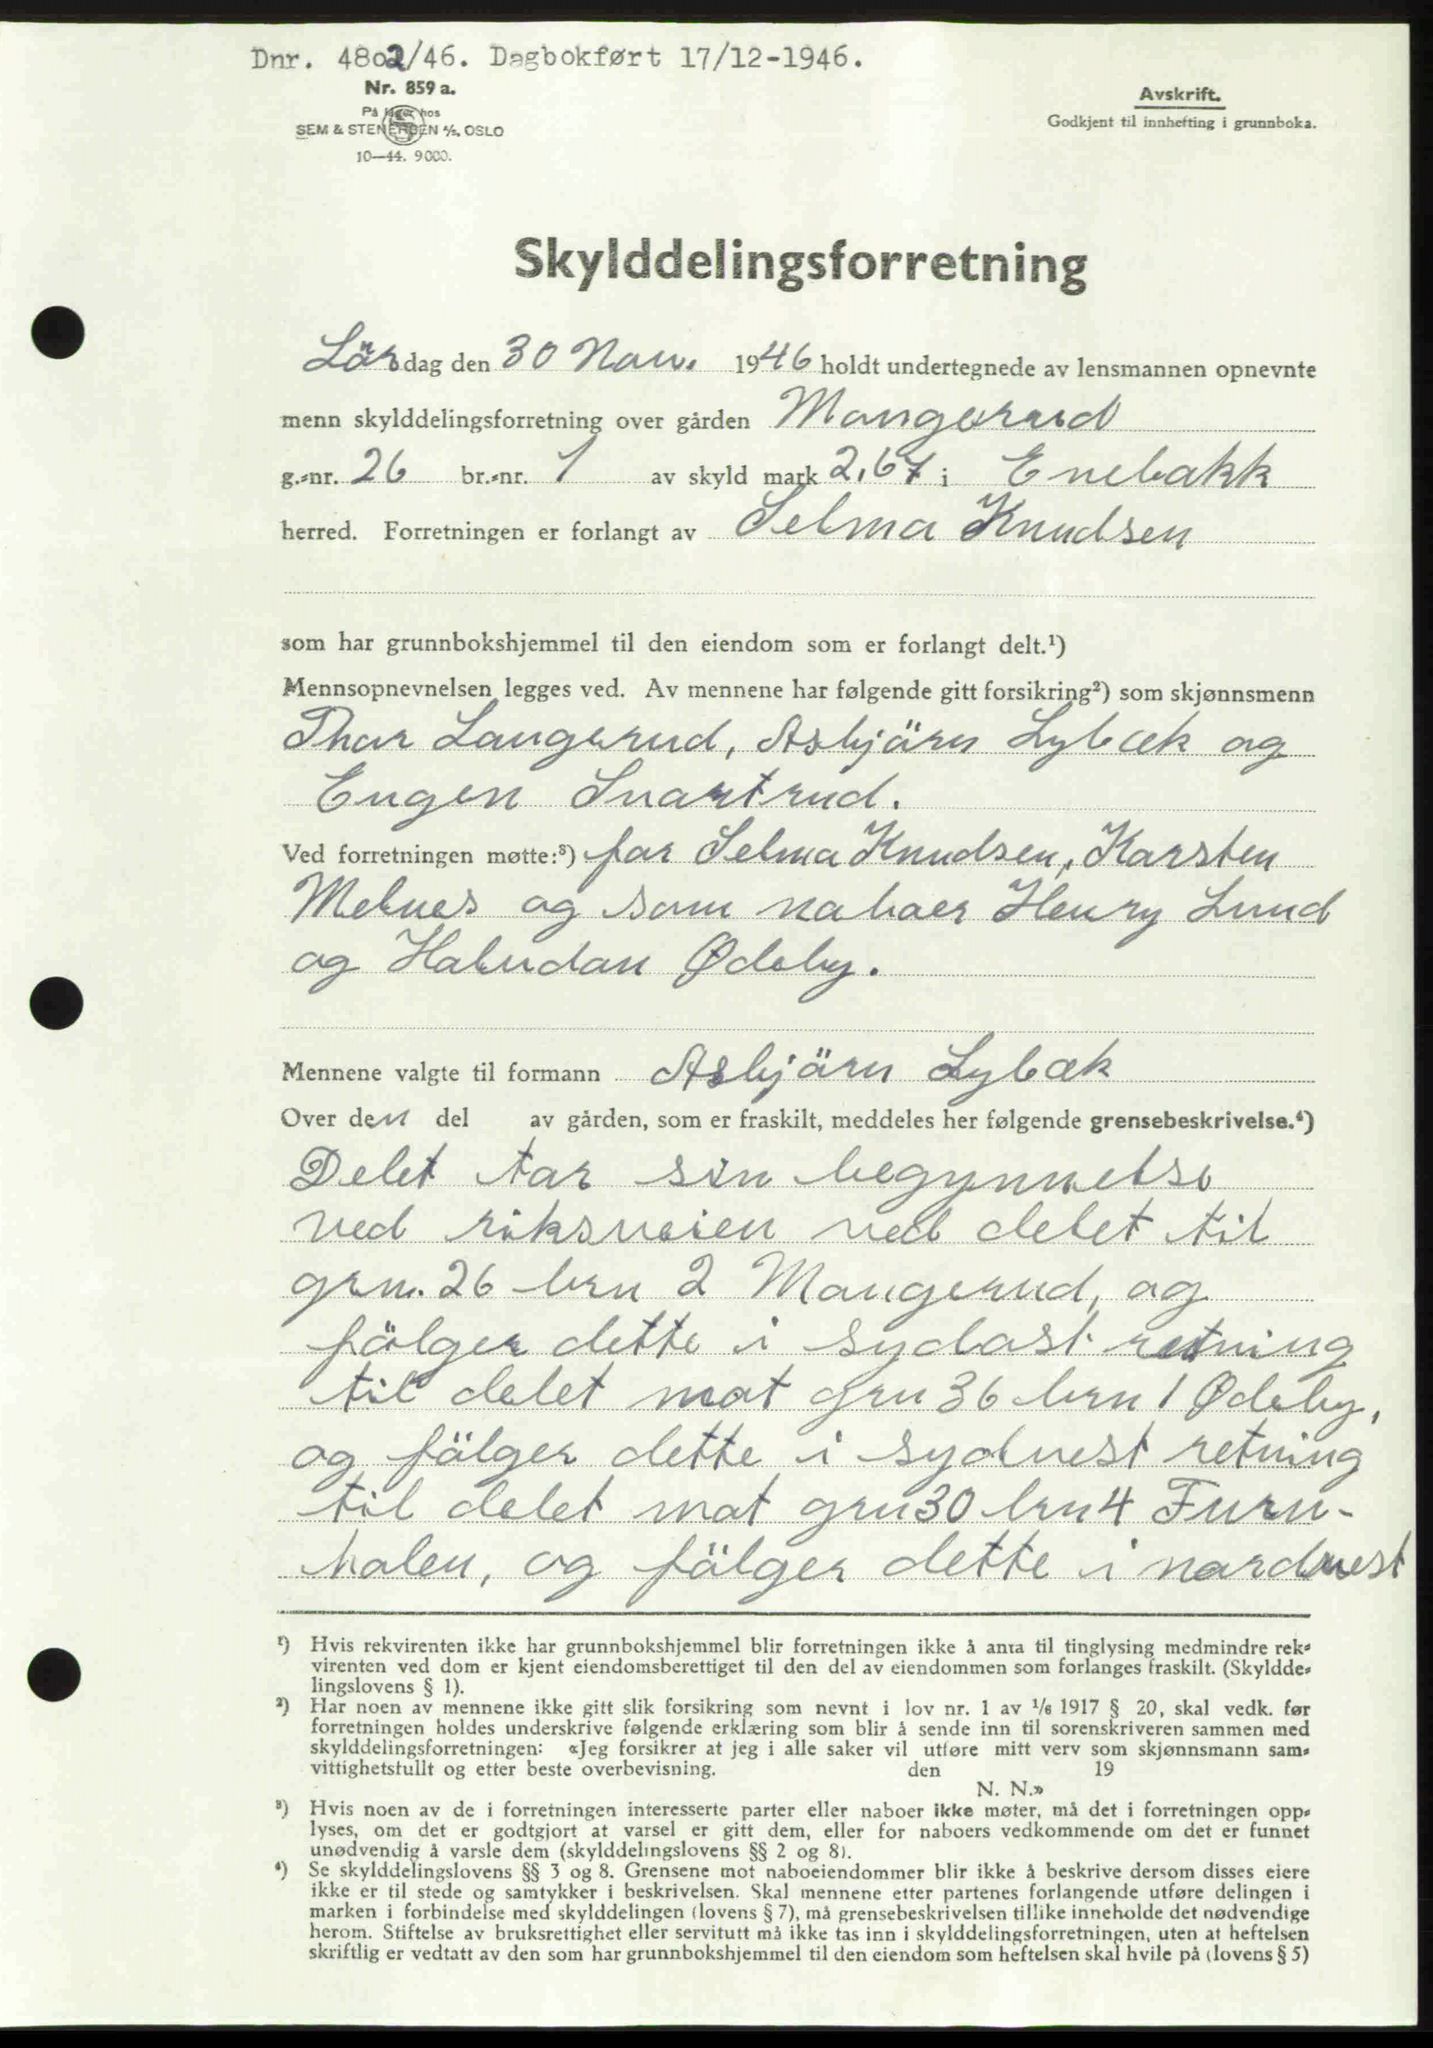 Dnr. 4802/46. Dagbokført 17/12-1946.
Nr. 859 a.
På lager hos
SEM & STENERSEN A/S, OSLO
10—44. 9000.
Avskrift.
Godkjent til innhefting i grunnboka.
Skylddelingsforretning
Lördag den 30 Nov. 1946 holdt undertegnede av lensmannen opnevnte
menn skylddelingsforretning over gården Mangerud
g.-nr. 26 br.-nr. 1 av skyld mark 2,67 i Enebakk
herred. Forretningen er forlangt av Selma Knudsen
som har grunnbokshjemmel til den eiendom som er forlangt delt.¹)
Mennsopnevnelsen legges ved. Av mennene har følgende gitt forsikring²) som skjønnsmenn
Thor Langerud, Asbjärn Lybæk og
Eugen Svartrud.
Ved forretningen møtte:³) for Selma Knudsen, Karsten
Melnes og som naboer Henry Lund
og Halvdan Ødeby.
Mennene valgte til formann Asbjärn Lybæk
Over den del av gården, som er fraskilt, meddeles her følgende grensebeskrivelse.⁴)
Delet tar sin begynnelse
ved riksveien ved delet til
grn. 26 brn 2 Mangerud, og
fölger dette i sydost retning
til delet mot grn 36 brn 1 Ødeby,
og fälger dette i sydvest retning
til delet mot grn 30 brn 4 Furu-
holen, og fälger dette i nordvest
¹) Hvis rekvirenten ikke har grunnbokshjemmel blir forretningen ikke å anta til tinglysing medmindre rek-
virenten ved dom er kjent eiendomsberettiget til den del av eiendommen som forlanges fraskilt. (Skyldde-
lingslovens § 1).
²) Har noen av mennene ikke gitt slik forsikring som nevnt i lov nr. 1 av ¹/₆ 1917 § 20, skal vedk. før
forretningen holdes underskrive følgende erklæring som blir å sende inn til sorenskriveren sammen med
skylddelingsforretningen: «Jeg forsikrer at jeg i alle saker vil utføre mitt verv som skjønnsmann sam-
vittighetsfullt og etter beste overbevisning. den 19
N. N.»
³) Hvis noen av de i forretningen interesserte parter eller naboer ikke møter, må det i forretningen opp-
lyses, om det er godtgjort at varsel er gitt dem, eller for naboers vedkommende om det er funnet
unødvendig å varsle dem (skylddelingslovens §§ 2 og 8).
⁴) Se skylddelingslovens §§ 3 og 8. Grensene mot naboeiendommer blir ikke å beskrive dersom disses eiere
ikke er til stede og samtykker i beskrivelsen. Skal mennene etter partenes forlangende utføre delingen i
marken i forbindelse med skylddelingen (lovens § 7), må grensebeskrivelsen tillike inneholde det nødvendige
herom. Stiftelse av bruksrettighet eller servitutt må ikke tas inn i skylddelingsforretningen, uten at heftelsen
skriftlig er vedtatt av den som har grunnbokshjemmel til den eiendom som heftelsen skal hvile på (lovens § 5)